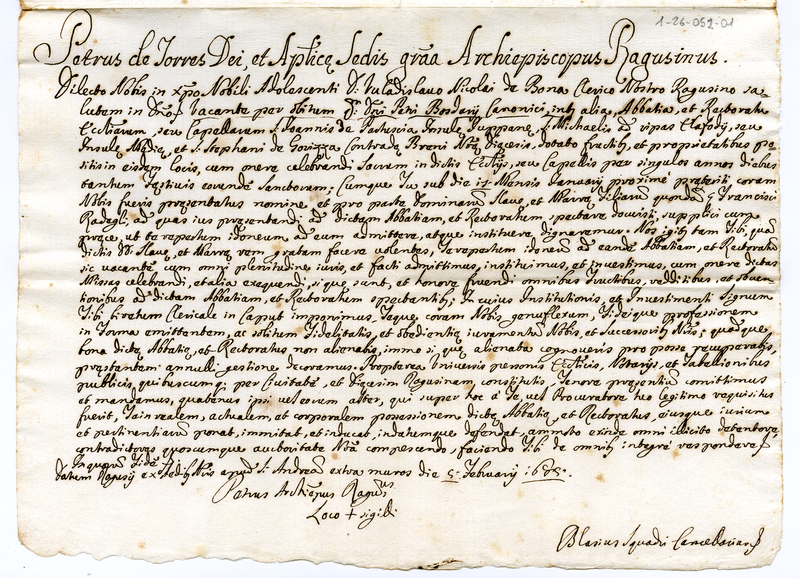 1-26-052-01
Petrus de Torres Dei, et Ap͞licę Sedis gr͞ãa Archiepiscopus Ragusinus.
Dilecto Nobis in xp͞o Nobili Adolescenti D. Vuladislavo Nicolai de Bona Clerico Nostro Ragusino sa-
lutem in Dno; Vacante per obitum Petri Bosdarij Canonici, int alia, Abbatia, et Rectoratu
Ecclarum, seu Capellarum S. Joannis de Insulę Juppanę, S. Michaelis ad ripas seu
Insulę Medię, et S. Stephani de Contradę Breni Nrę Diocesis, dotato fructib, et proprietatibus po-
sitis in eisdem locis, cum onere celebrandi Sacrum in dictis Ecclijs, seu Capellis per singulos annos diebus
tantum festivis eorundē Sanctorum; Cumque Tu sub die Mensis Januarij proximé pręteriti coram
Nobis fueris pręsentatus nomine, et pro parte dominarum Slavę, et Marrę filiarum quondā Francisci
Radegli, ad quas ius pręsentandi ad dictam Abbatiam, et Rectoratum spectare docuisti, supplici cum
prece, ut te repertum idoneum ad eum admittere, atque instituere dignaremur. Nos igitur tam Tibi, quā
dictis DD. Slavę, et Marrę rem gratam facere volentes, Te repertum idoneū ad eandē Abbatiam, et Rectoratū
sic vacantē cum omni plenitudine iuris, et facti admittimus, instituimus, et investimus, cum onere dictas
Missas celebrandi, et alia exequendi, si quę sunt, et honore fruendi omnibus fructibus, redditibus, et obven-
tionibus ad dictam Abbatiam, et Rectoratum spectantib; In cuius Institutionis, et Investimenti Signum
Tibi biretum Clericale in Caput imponimus, Teque coram Nobis genuflexum, fideique professionem
in forma emittentem, ac solitum fidelitatis, et obedientię iuramentum Nobis, et Successorib Nris; quodque
bona dictę Abbatię, et Rectoratus non alienabis, immo si quę alienata cognoveris pro posse recuperabis,
pręstantem annulli gestione decoramus. Propterea Universis personis Ecclicis, Notarijs, et Tabellionibus
publicis, quibuscumq; per Civitatē, et Diocesim Ragusinam, constitutis, tenore pręsentium comittimus
et mandamus, quatenus ipsi vel eorum alter, qui super hoc à Te, vel Procuratore tuo legitimo requisitus
fuerit, Te in realem, actualem, et corporalem possessionem dictę Abbatię, et Rectoratus, eiusque iurium
et pertinentiarum ponat, immittat, et inducat, inductumque defendat, amoto exinde omni illicito detentore,
contradictores quoscumque auctoritate Nrā compescendo, faciendo Tibi de omnib integrè responderi
In quorum fidē
Datum Ragusij ex Ędib Nris apud S. Andreā extra muros die 5. Februarij
Petrus Archiepus Ragus
Loco + sigilli
Blasius Squadri Cancellarius